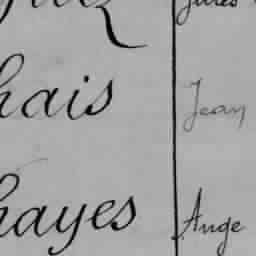 Jules
hais Jean
hayes Ange